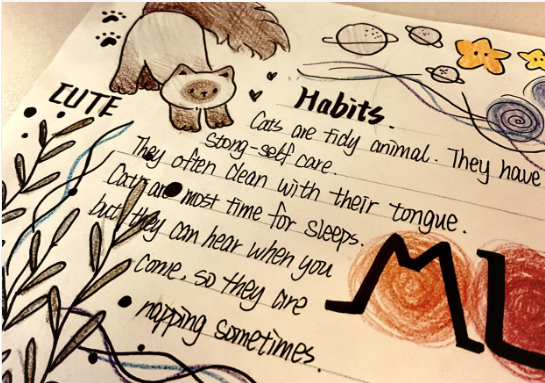 CUTE
Habits.
Cats are tidy animal. They have
stong-self care.
They often clean with their tongue.
Cats are most time for sleeps.
but they can hear when you
come, so they are
napping sometimes.